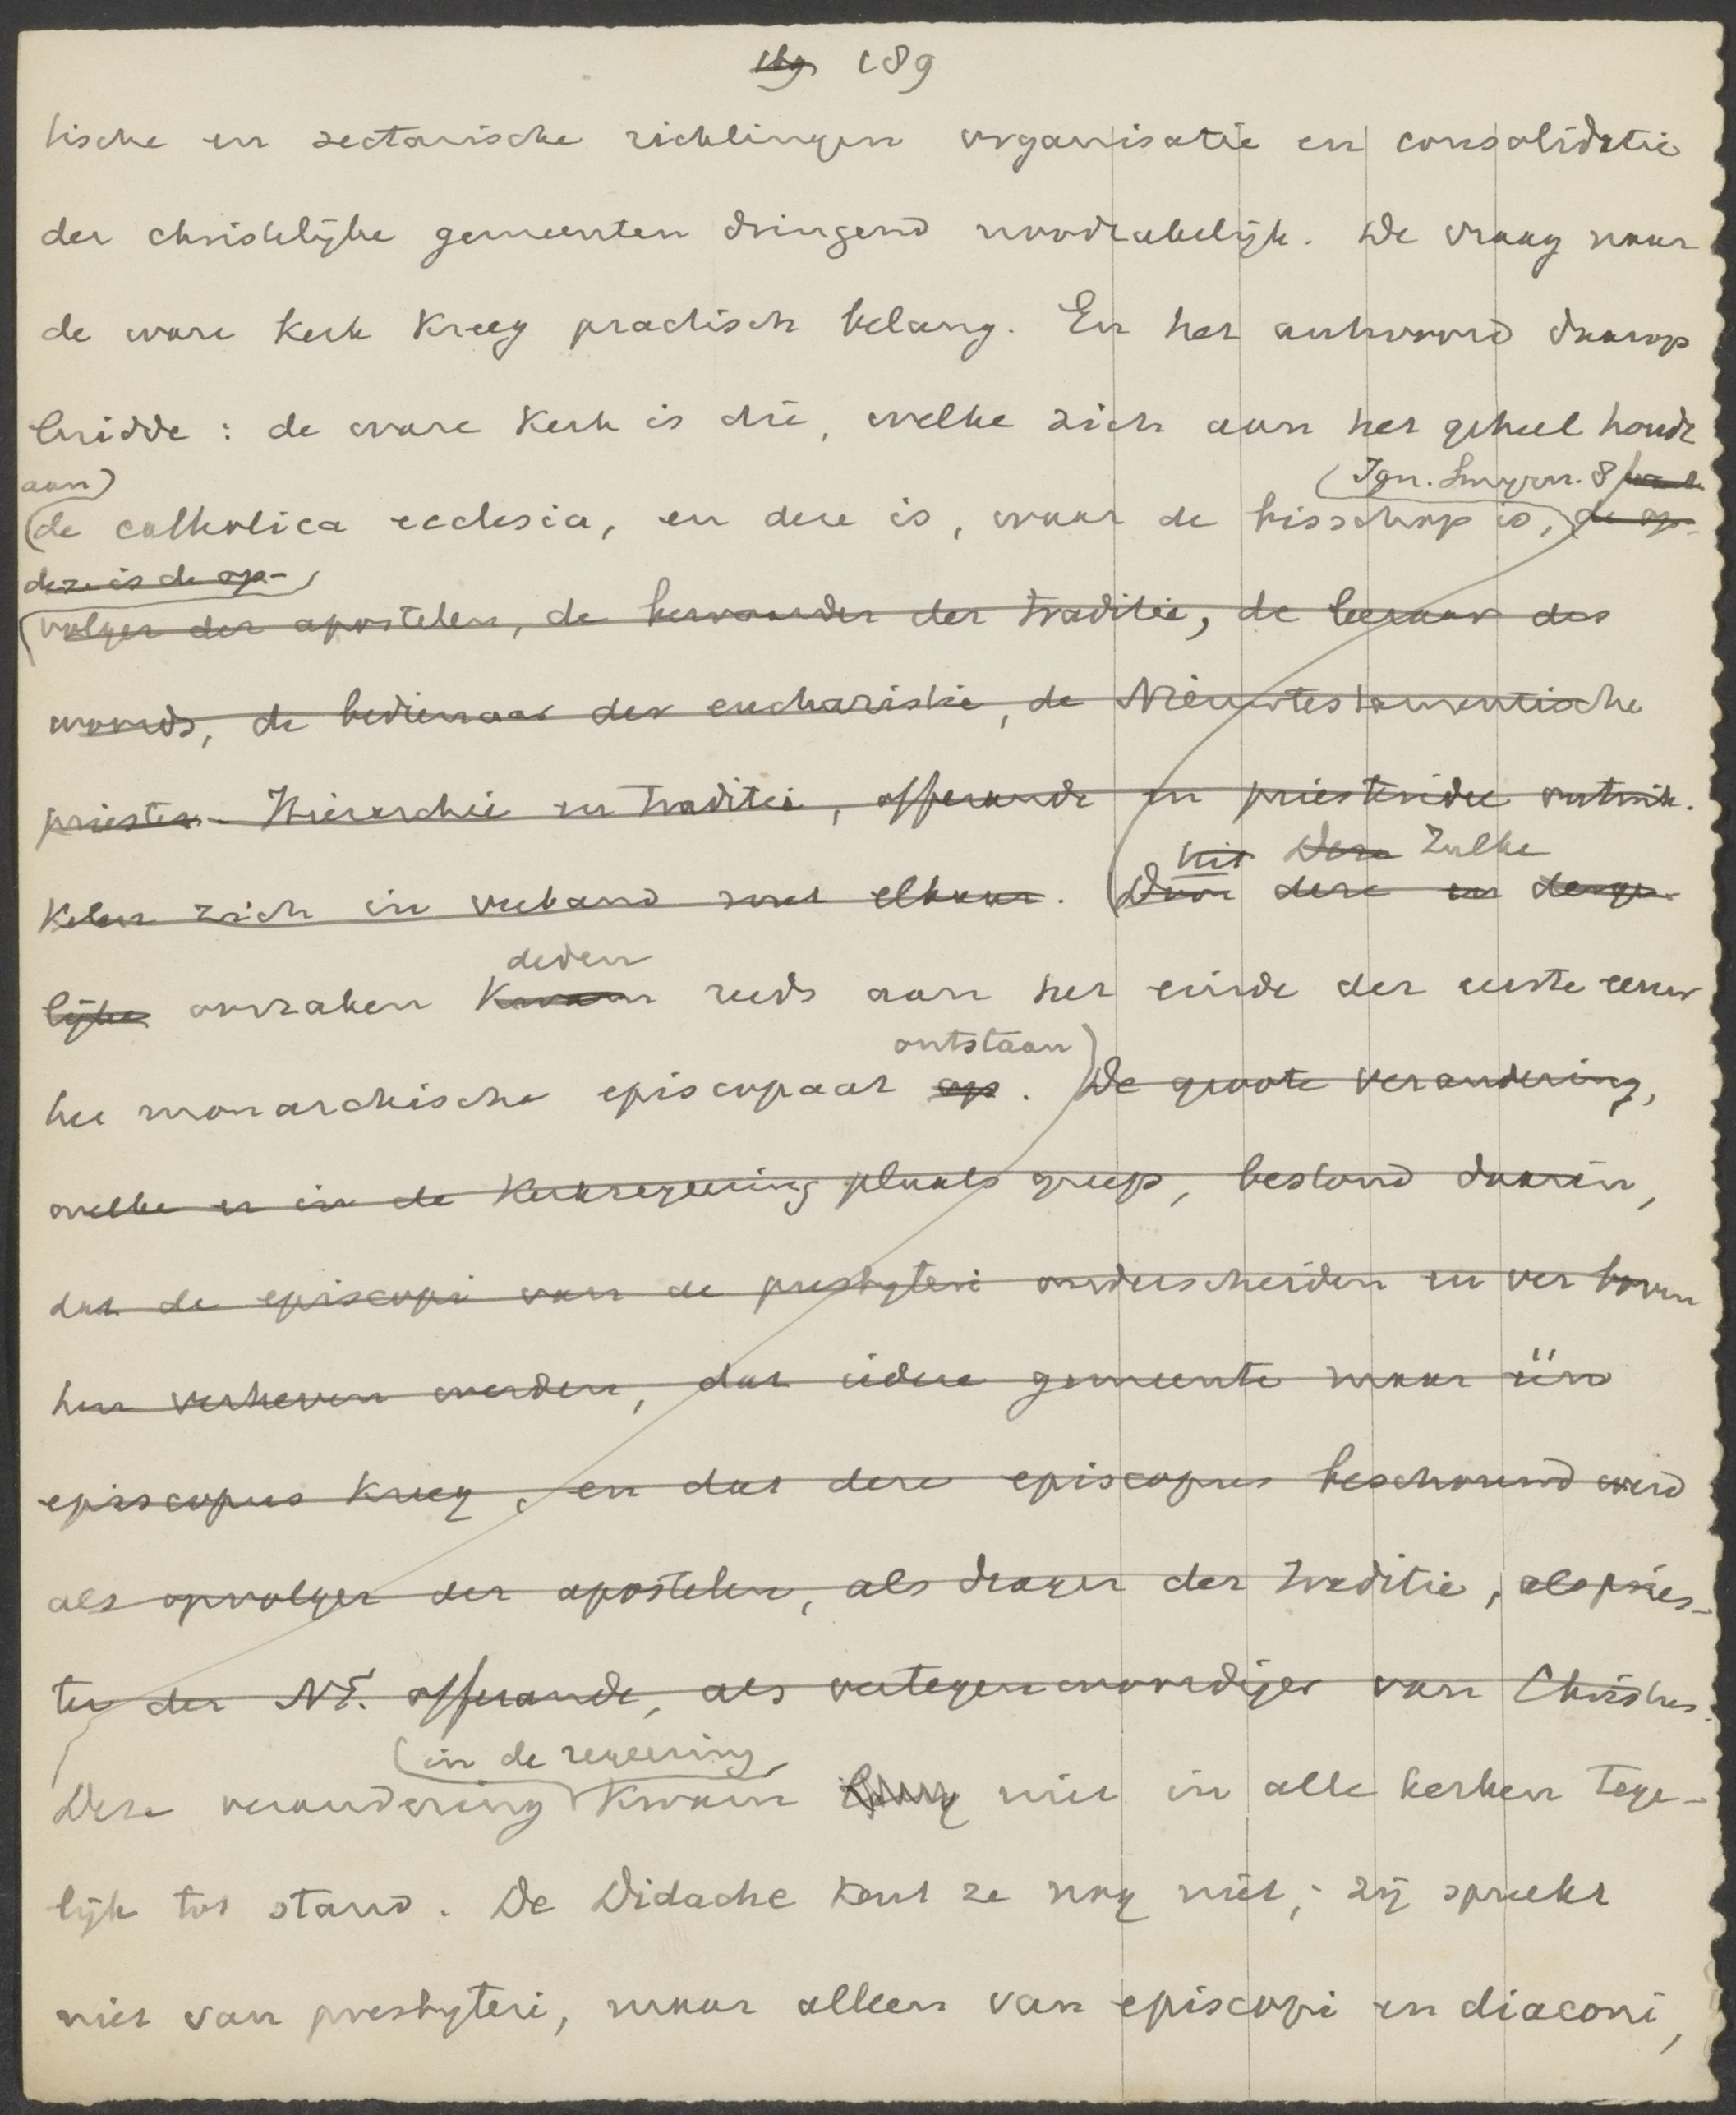 189
tische en sectarische richtingen organisatie en consolidatie
der christelijke gemeenten dringend noodzakelijk. De vraag naar
de ware kerk kreeg practisch belang. En het antwoord daarop
luidde: de ware kerk is die, welke zich aan het geheel houdt
aan) (Ign. Smyrn. 8
(de catholica ecclesia, en deze is, waar de bisschop is, de op-
deze is de op-
volger der apostelen, de bewaarder der traditie, de leeraar des
woords, de bedienaar der eucharistie, de Nieuwtestamentische
priester. Hierarchie en traditie, offerande en priesteridee ontwik-
uit Deze Zulke
kelen zich in verband met elkaar. (Door deze en derge-
deden
lijke oorzaken kwam reeds aan het einde der eerste eeuw
ontstaan)
het monarchische episcopaat op. De groote verandering,
welke er in de kerkregeering plaats greep, bestond daarin,
dat de episcopi van de presbyteri onderscheiden en ver boven
hen verheven werden, dat iedere gemeente maar één
episcopus kreeg, en dat deze episcopus beschouwd werd
als opvolger der apostelen, als drager der traditie, als pries-
ter der NT. offerande, als vertegenwoordiger van Christus.
(in de regeering
Deze verandering kwam niet in alle kerken tege-
lijk tot stand. De Didache kent ze nog niet; zij spreekt
niet van presbyteri, maar alleen van episcopi en diaconi,